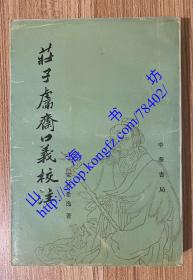 莊子鬳齋口義校注
逸 著
中華書局
山海书坊
https://shop.kongfz.com/78402/